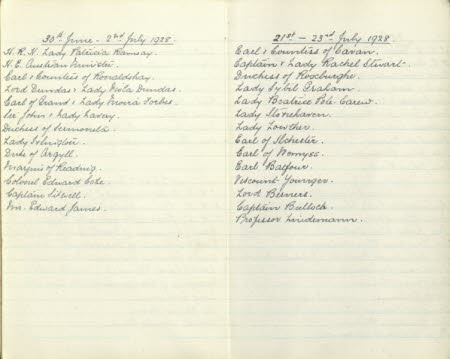 30th June - 2nd July 1928.
H.R.H. Lady Patricia Ramsay.
H.E. Austrian Minister.
Earl & Countess of Ronaldshay.
Lord Dundas & Lady Viola Dundas.
Earl of Granard & Lady Moira Forbes.
Sir John & Lady Lavery.
Duchess of Sermoneta.
Lady Islington.
Duke of Argyll.
Marquis of Reading.
Colonel Edward Coke.
Captain Sitwell.
Mr. Edward James.
21st - 23rd July 1928.
Earl & Countess of Cavan.
Captain & Lady Rachel Stuart.
Duchess of Roxburghe.
Lady Sybil Graham.
Lady Beatrice Pole-Carew.
Lady Stonehaven.
Lady Lowther.
Earl of Ilchester.
Earl of Wemyss.
Earl Balfour.
Viscount Younger.
Lord Berners.
Captain Bullock.
Professor Lindemann.